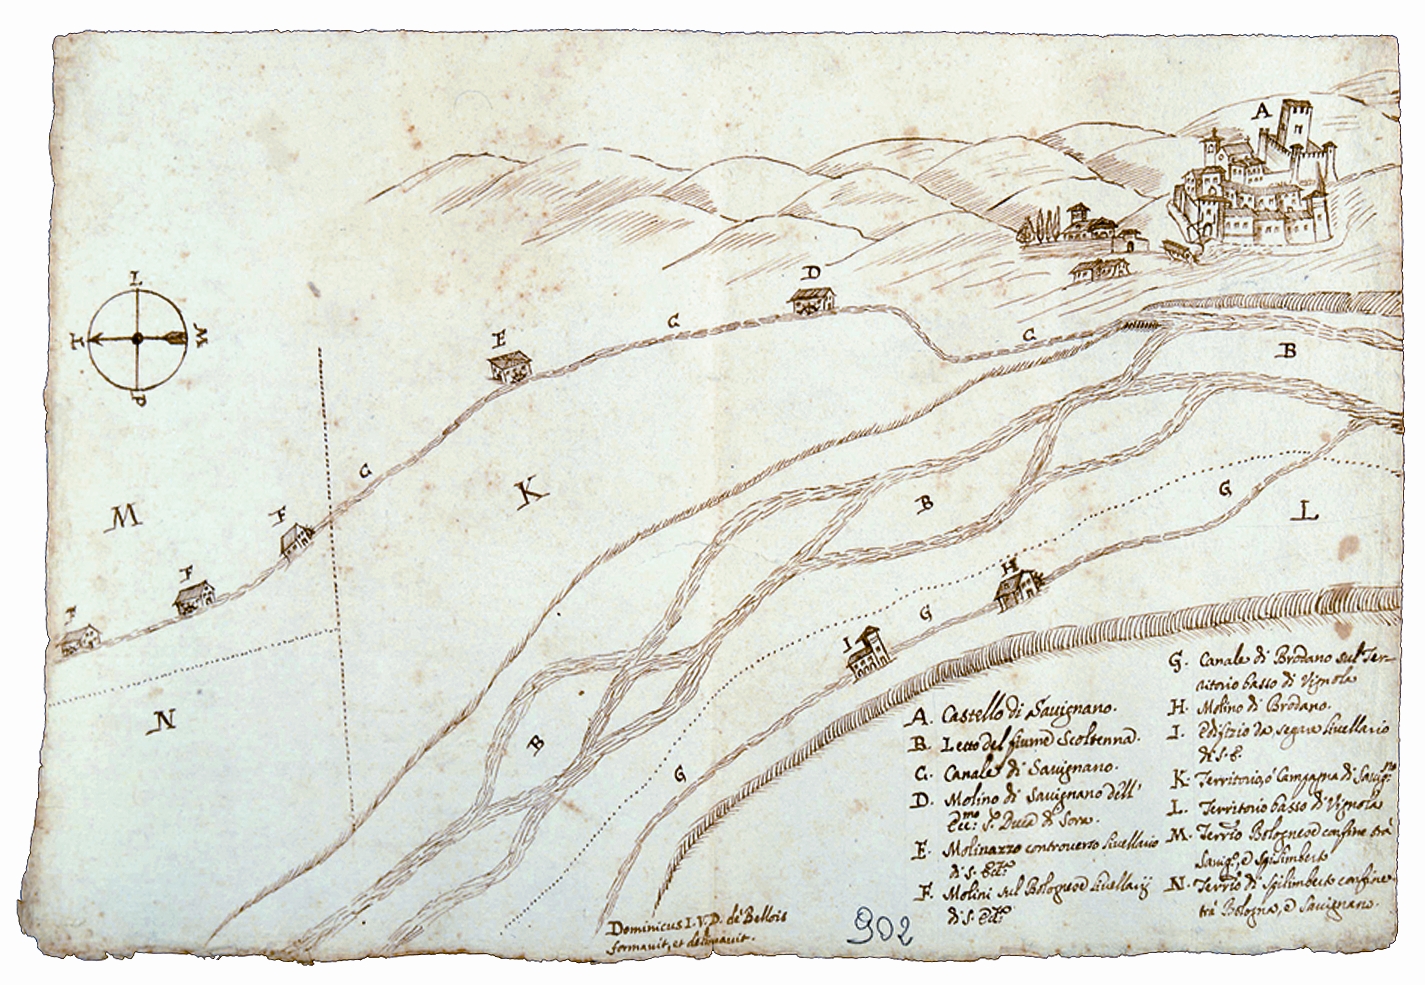 A
D
L
E
C
T
M
C
B
C
K
M
F
B
G
L
F
H
F
G
I
N
B
G
A. Castello di Sauignano.
B. Letto del fiume Scoltenna.
C. Canale di Sauignano.
D. Molino di Sauignano dell'
Ecc.mo S.r Duca di Sora.
E. Molinazzo controuerso liuellario
di S. Ecc.
F. Molini sul Bolognese liuellarij
di S. Ecc.
G. Canale di Brodano sul Ter-
ritorio basso di Vignola
H. Molino di Brodano.
I. Edifizio da segare liuellario
di S. E.
K. Territorio, ò Campagna di Sauig.no
L. Territorio basso di Vignola
M. Terr.o Bolognese confine trà
Sauig.o, e Spilimberto
N. Terr.o di Spilimberto confine
trà Bologna, e Sauignano.
Dominicus I.V.D. de' Bellois
formauit, et delineauit.
902